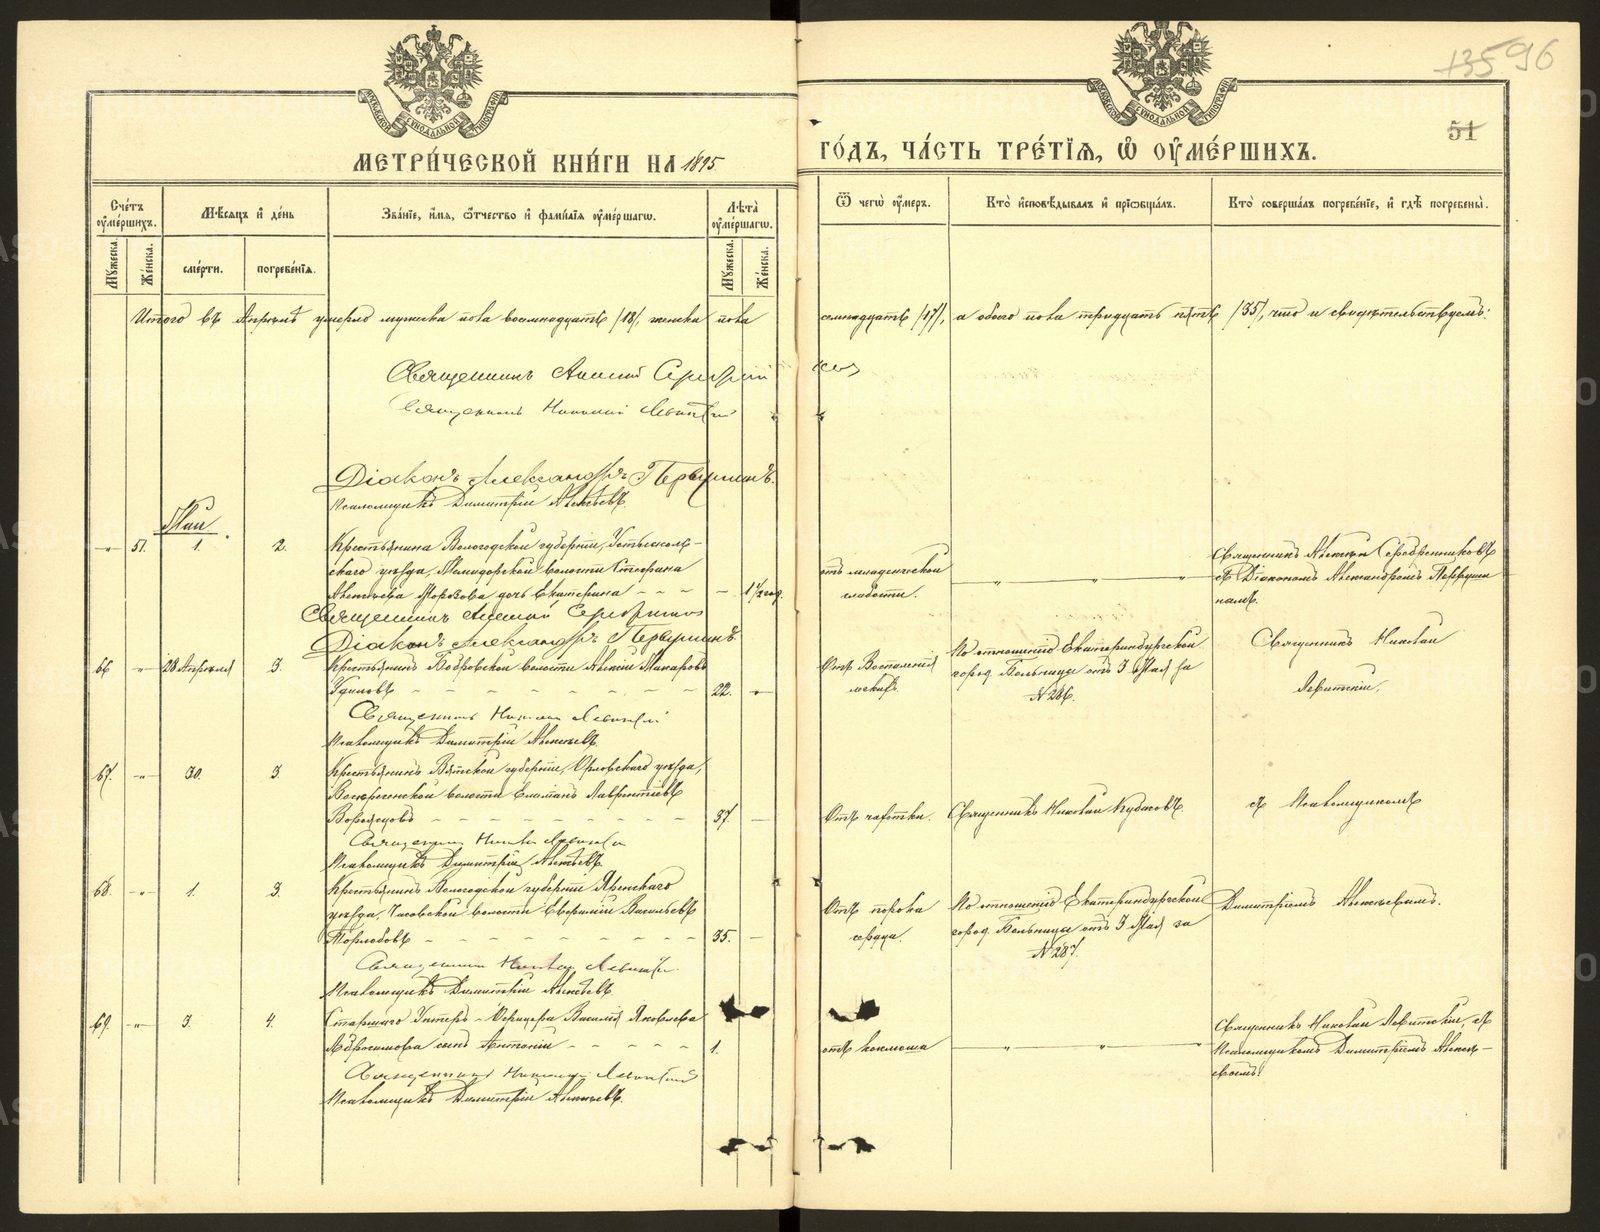 13596
51
МЕТРИ́ЧЕСКОЙ КНИ́ГИ НА 1895
ГО́ДЪ, ЧА́СТЬ ТРЕ́ТІѦ, Ѡ҆ ОУ҆МЕ́РШИХЪ.
Сче́тъ оу҆ме́ршихъ.
Мѣ́сяцъ и҆ де́нь
Зва́нїе, и҆́мя, ѻ҆́тчество и҆ фамн́лїя оу҆ме́ршагѡ.
Лѣ́та оу҆ме́ршагѡ.
Ѿ чегѡ̀ оу҆́меръ.
Кто̀ и҆сповѣ́дывалъ и҆ прїѡбща́лъ.
Кто̀ соверша́лъ погребе́нїе, и҆ гдѣ̀ погребены̀.
Мꙋ́жеска.
Же́нска.
сме́рти.
погребе́нїѧ.
Мꙋ́жеска.
Же́нска.
Итого въ Апрѣлѣ умерло мужеска пола восемнадцать /18/, женска пола
семнадцать /17/, а обоего пола тридцать пять /35/, что и свидѣтельствуемъ:
Священникъ Алексій
Священникъ Николай Левитскій
Діаконъ Александръ Первушинъ.
Псаломщикъ Димитрій Алексѣевъ
Маи
51. 1. 2. Крестьянина Вологодской губерніи, Устьсысоль-
скаго уѣзда, волости Стефана
Алексѣева Морозова дочь Екатерина 1 1/2 год.
отъ младенческой
слабости.
Священникъ Алексѣй Серебренниковъ
съ Діакономъ Александромъ Первуши
нымъ.
Священникъ Алексій
Діаконъ Александръ Первушинъ
66 28 Апрѣля 3. Крестьянинъ Бобровской волости Алексій Макаровъ
22.
Отъ Воспаленія
легкихъ.
По отношенію Екатеринбургской
город. Больницы отъ 3 Мая за
№ 286.
Священникъ Николай
Левитскій,
Священникъ Николай Левитскій
Псаломщикъ Димитрій Алексѣевъ.
67. 30. 3. Крестьянинъ Вятской губерніи, Орловскаго уѣзда,
волости Лаврентіевъ
37.
Отъ чахотки.
Священникъ Николай
съ Псаломщикомъ
Священникъ Николай Левитскій
Псаломщикъ Димитрій Алексѣевъ
68. 1. 3. Крестьянинъ Вологодской губерніи Яренскаго
уѣзда, Часовской волости Васильевъ
35.
Отъ порока
сердца.
По отношенію Екатеринбургской
город. Больницы отъ 3 Мая за
№ 287.
Димитріемъ Алексѣевымъ.
Священникъ Николай Левитскій.
Псаломщикъ Димитрій Алексѣевъ.
69. 3. 4. Старшаго Унтеръ-Офицера Василія Яковлева
сынъ Антоній 1.
отъ коклюша
Священникъ Николай Левитскій, съ
Псаломщикомъ Димитріемъ Алексѣ-
евымъ.
Священникъ Николай Левитскій
Псаломщикъ Димитрій Алексѣевъ.